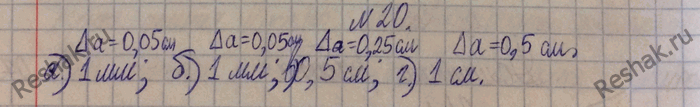 № 20.
Δa=0,05см Δa=0,05см Δa=0,25см Δa=0,5 см,
а) 1 мм; б.) 1 мм; в) 0,5 см; г.) 1 см.
Reshak.ru
Reshak.ru